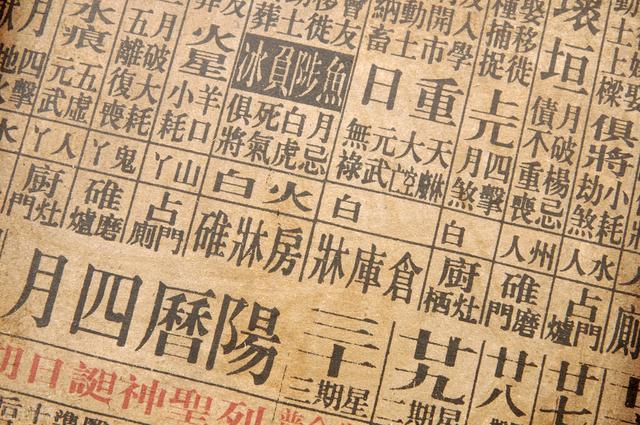 移徙捕捉
入學
開市
動土
納畜
移徙
俱將
小耗
劫煞
水人
占門爐
壞垣
月破楊忌
債不重喪
州人
碓磨門
上元
四擊
月煞
白
廚灶栖
重日
大空
元武
無祿
白
倉庫牀
魚陟負冰
月忌
白虎
死氣
俱將
火白
房牀碓
火星
羊口
小耗
山丫
占門廁
月破大耗
五離復喪
鬼丫
碓磨爐
水痕
五虛
元武
人丫
廚灶門
四擊
廿七
廿八
廿九
星期二
三十
星期三
陽曆四月
列聖神誕日